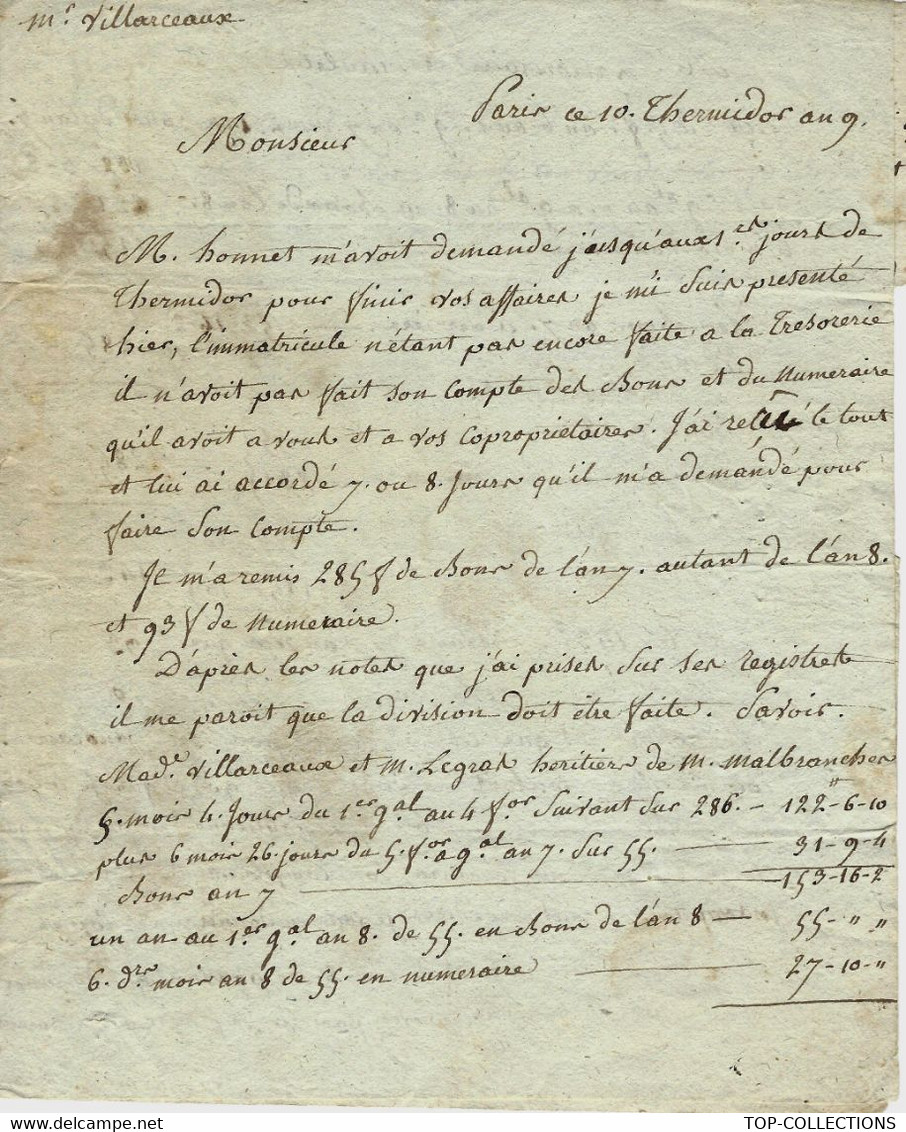 mr Villarceaux
Paris ce 10. Thermidor an 9.
Monsieur
M. honnet m'avoit demandé jusqu'aux 1ers jours de
Thermidor pour finir vos affaires je m'i suis presenté
hier, l'immatricule n'étant pas encore faite a la Tresorerie
il n'avoit pas fait son compte des Bons et du Numeraire
qu'il avoit a vous et a vos copropriétaires. J'ai le tout
et lui ai accordé 7. ou 8. Jours qu'il m'a demandé pour
faire son compte.
Il m'a remis 285 f de Bons de l'an 7. autant de l'an 8.
et 93 f de Numeraire.
D'après les notes que j'ai prises sur ses registres
il me paroit que la division doit être faite. Savoir.
Made. Villarceaux et M. Legras heritiers de M. Malbranches
5. mois 4. Jours du 1er gal au 4 for suivant sur 286. - 122"-6-10
plus 6 mois 26. jours du 5. for a gal an 7. sur 55. - 31-9-4
Bons an 7 - 153-16-2
un an au 1er gal an 8. de 55. en Bons de l'an 8 - 55-"-"
6. drs mois an 8 de 55. en numeraire - 27-10-"
TOP-COLLECTIONS